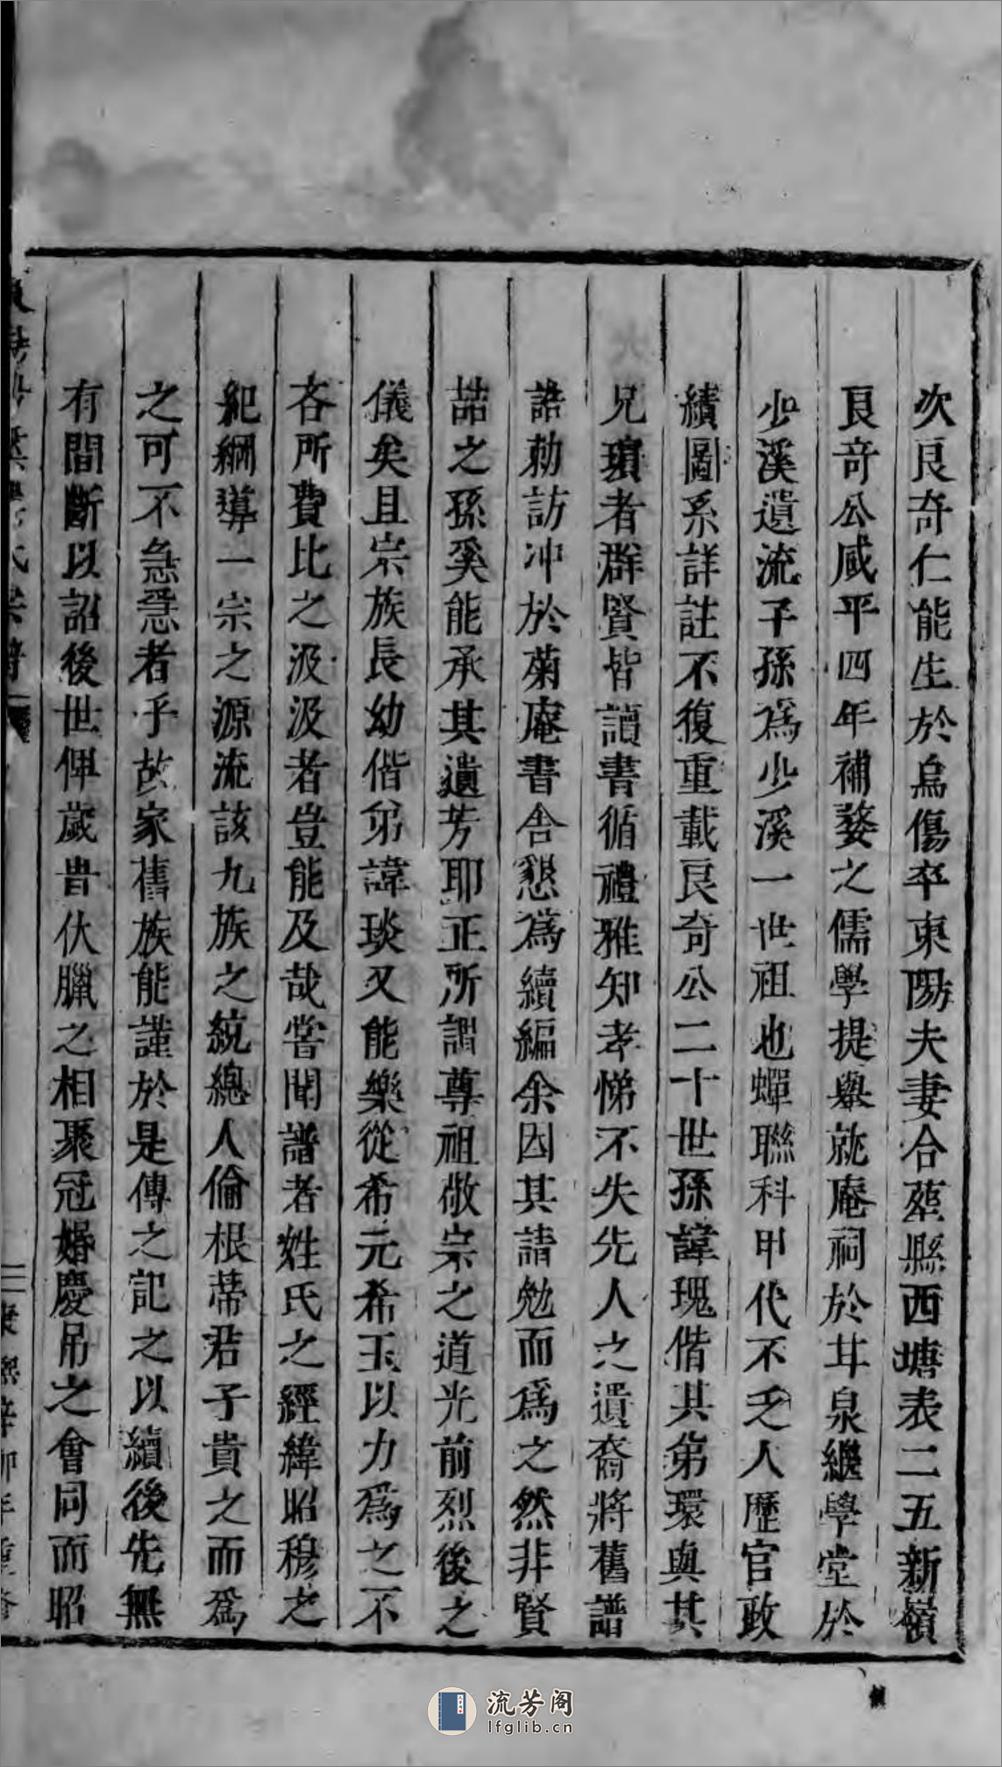 次良奇仁能生於烏傷卒東陽夫妻合塟縣西塘表二五新嶺
良竒公咸平四年補婺之儒學提舉就庵祠於甘泉繼學堂於
少溪遺流子孫爲少溪一世祖也蟬聯科甲代不乏人歷官政
績圖系詳註不復重載良奇公二十世孫諱瑰偕其弟環與其
兄瓊者群賢皆讀書循禮雅知孝悌不失先人之遺裔將舊譜
誥勅訪冲於菊庵書舍懇爲續編余因其請勉而爲之然非賢
喆之孫奚能承其遺芳耶正所謂尊祖敬宗之道光前烈後之
儀矣且宗族長幼偕弟諱琰又能樂從希元希玉以力爲之不
吝所費比之汲汲者豈能及哉嘗聞譜者姓氏之經緯昭穆之
紀綱導一宗之源流該九族之統總人倫根蒂君子貴之而爲
之可不急急者乎故家舊族能謹於是傳之記之以續後先無
有間斷以詔後世俾歲旹伏臘之相聚冠婚慶吊之會同而昭
氏宗譜
二 康熙辛卯年重修
流芳阁
lfglib.cn